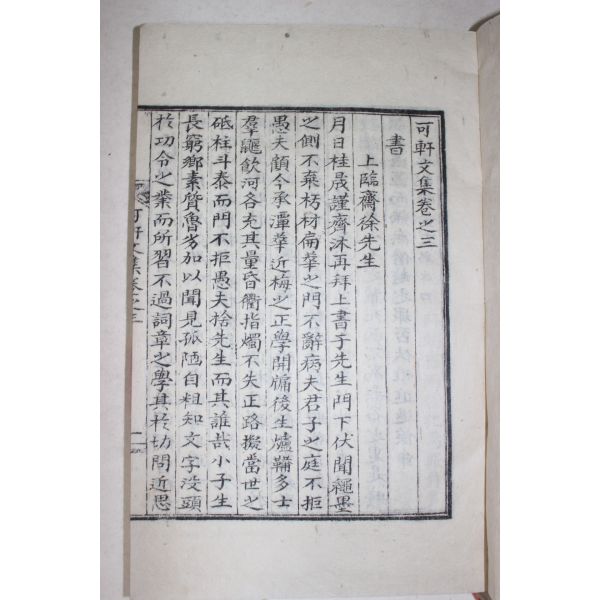 可軒文集卷之三
書
上臨齋徐先生
月日桂晟謹齊沐再拜上書于先生門下伏聞繩墨
之側不棄朽材扁華之門不辭病夫君子之庭不拒
愚夫顧今承潭華近梅之正學開牖後生爐鞴多士
羣鼴飮河各充其量昏衢指燭不失正路擬當世之
砥柱斗泰而門不拒愚夫捨先生而其誰哉小子生
長窮鄉素質魯劣加以聞見孤陋自粗知文字沒頭
於功令之業而所習不過詞章之學其於切問近思
可軒文集卷之三
一